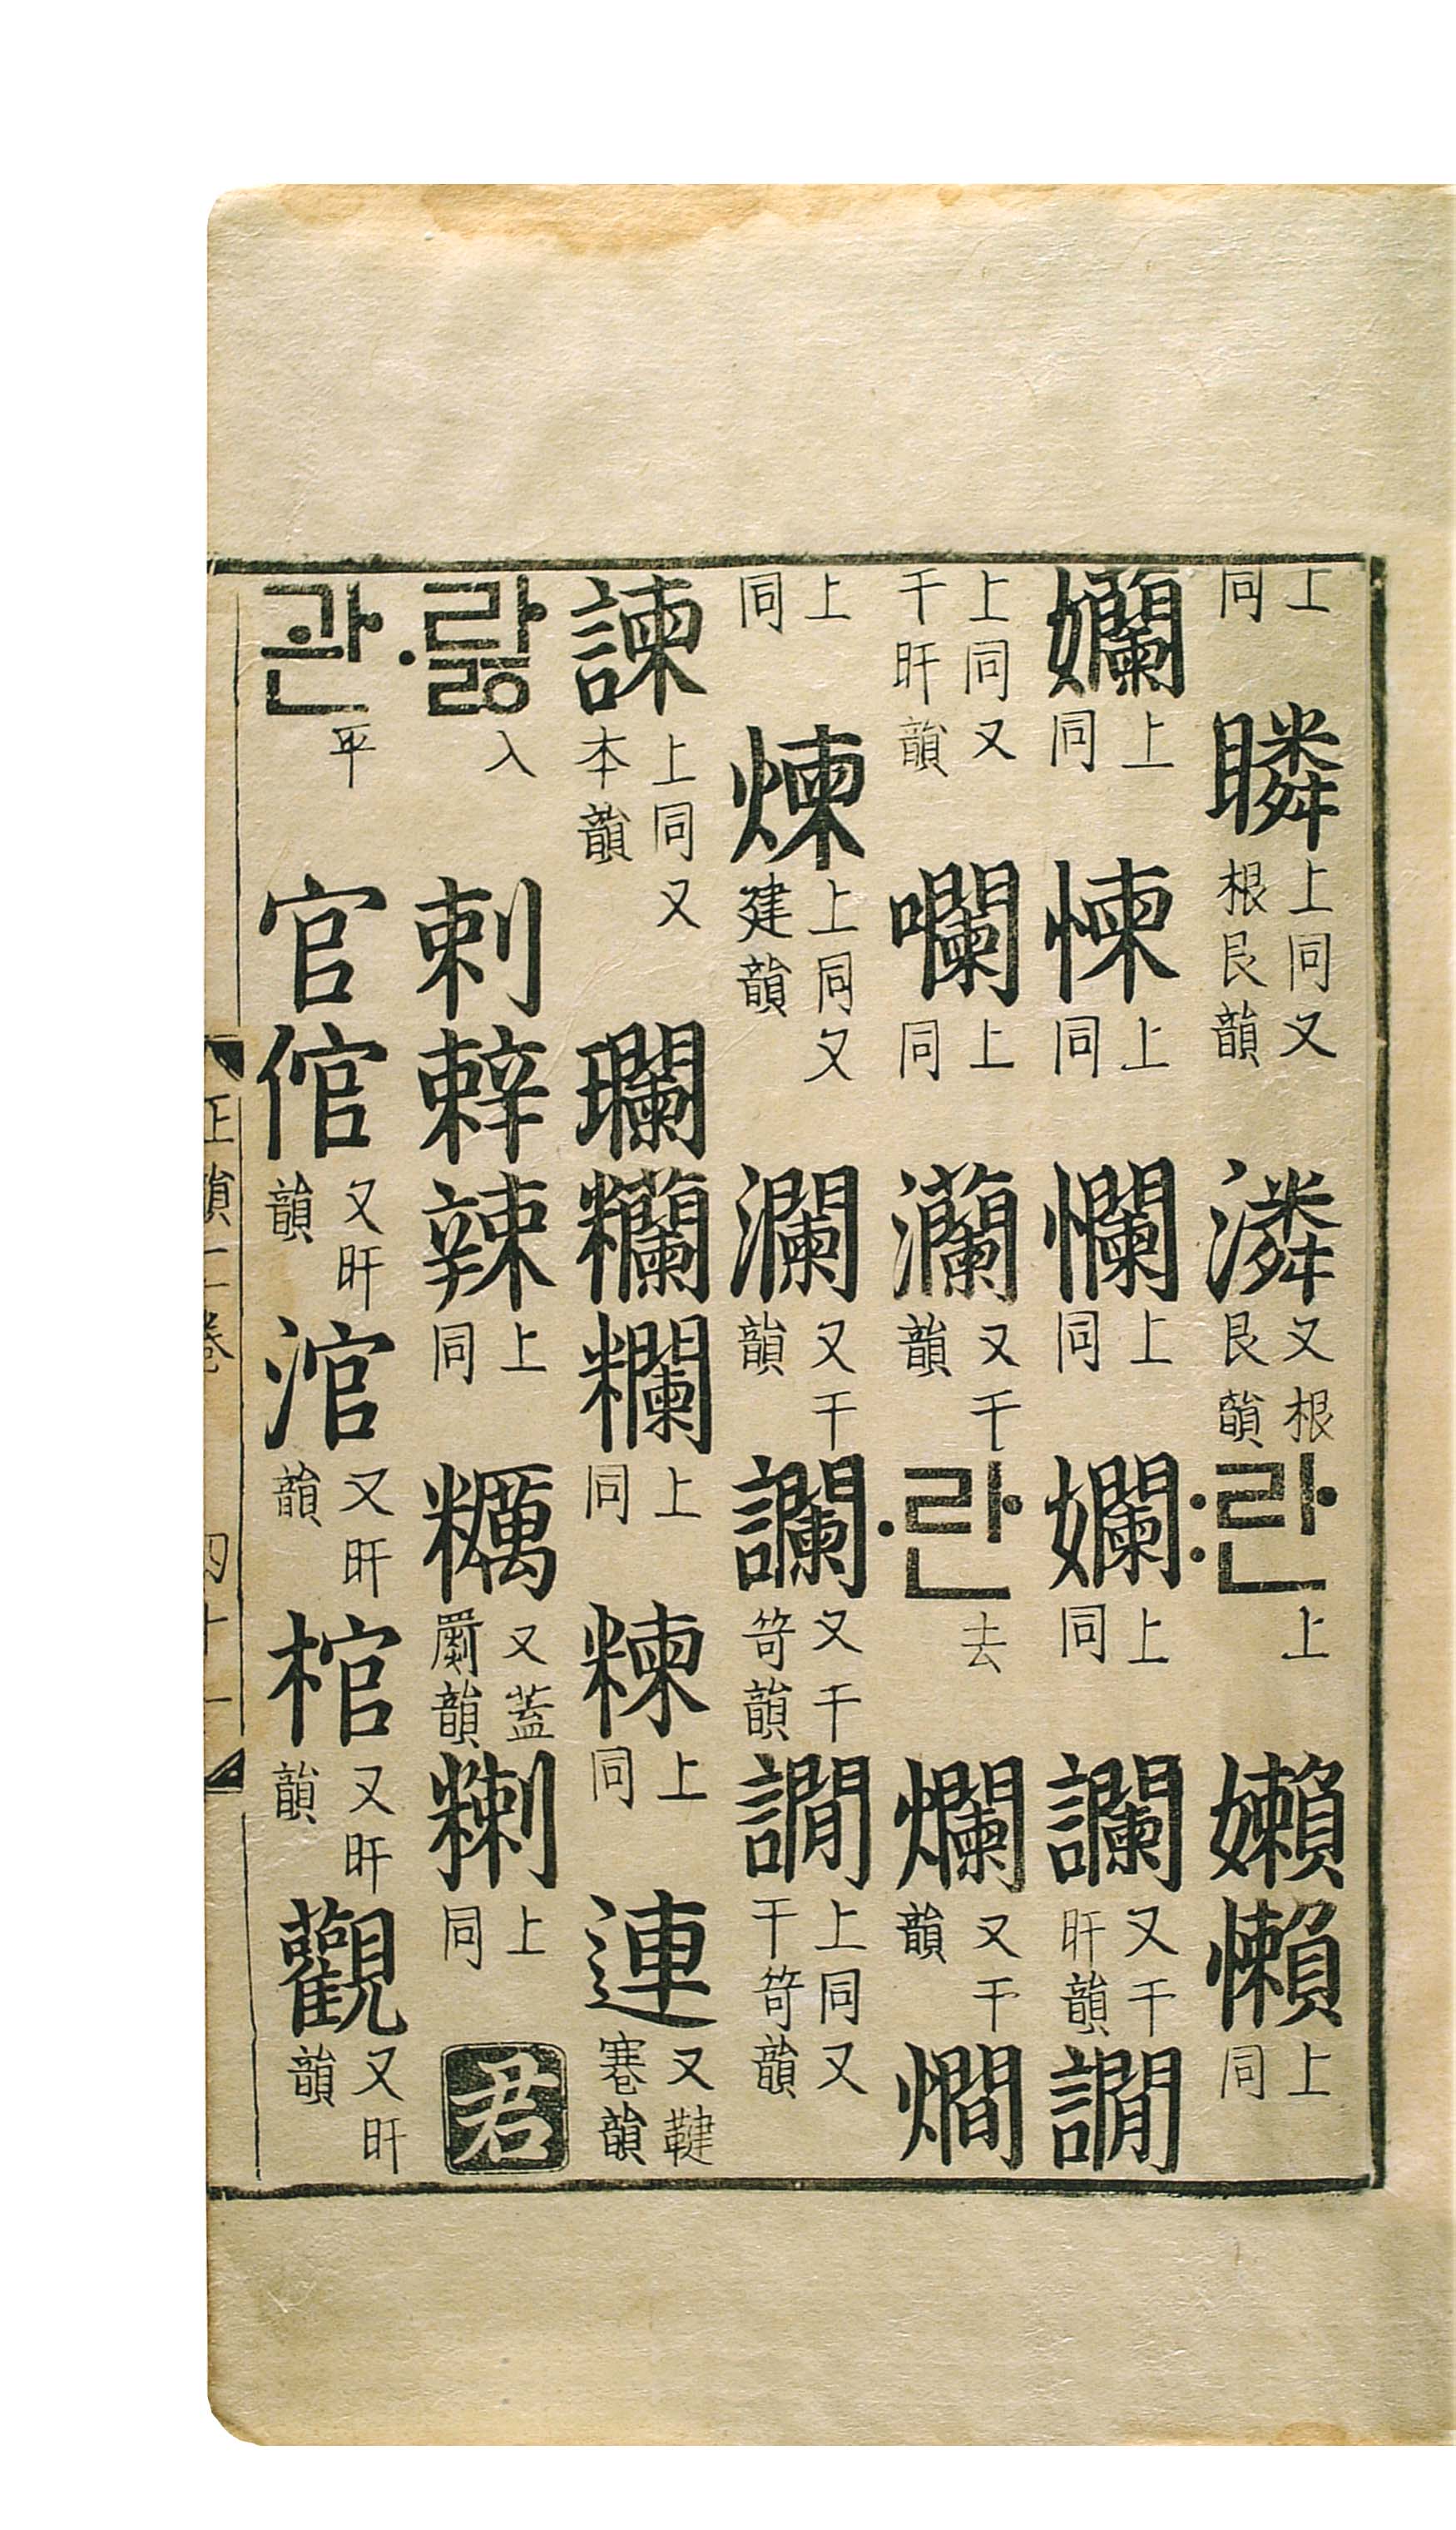 上同瞵上同又根艮韻潾又根艮韻:란上嬾懶上同
孏上同上同㦨上同孄上同讕又干旰韻譋
上同又干旰韻㘓上同灡又干韻·란去爛又干韻燗
上同煉上同又建韻瀾又干韻讕又干笴韻譋上同又干笴韻
諫上同又本韻瓓糷上同上同連又鞬寋韻
·라ᇙ入剌辢辣上同糲又蓋罽韻上同君
관平官倌又旰韻涫又旰韻棺又旰韻觀又旰韻
正韻二卷 四十一